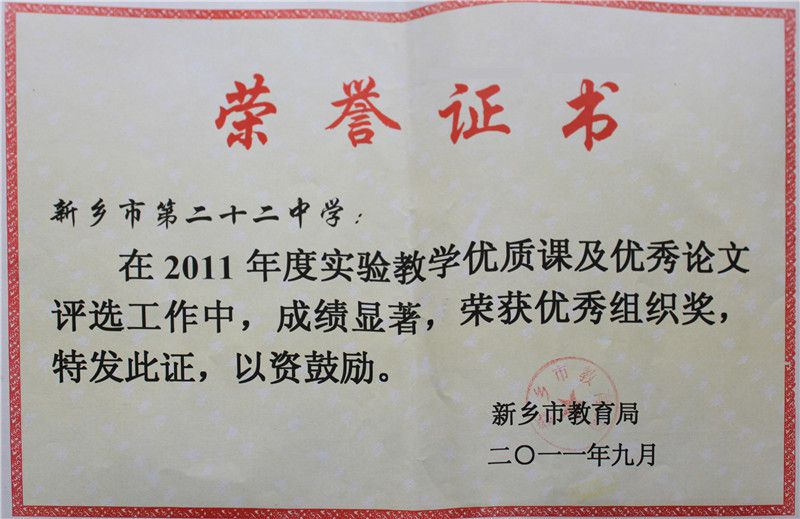 荣誉证书
新乡市第二十二中学：
在2011年度实验教学优质课及优秀论文
评选工作中，成绩显著，荣获优秀组织奖，
特发此证，以资鼓励。
新乡市教育局
二〇一一年九月